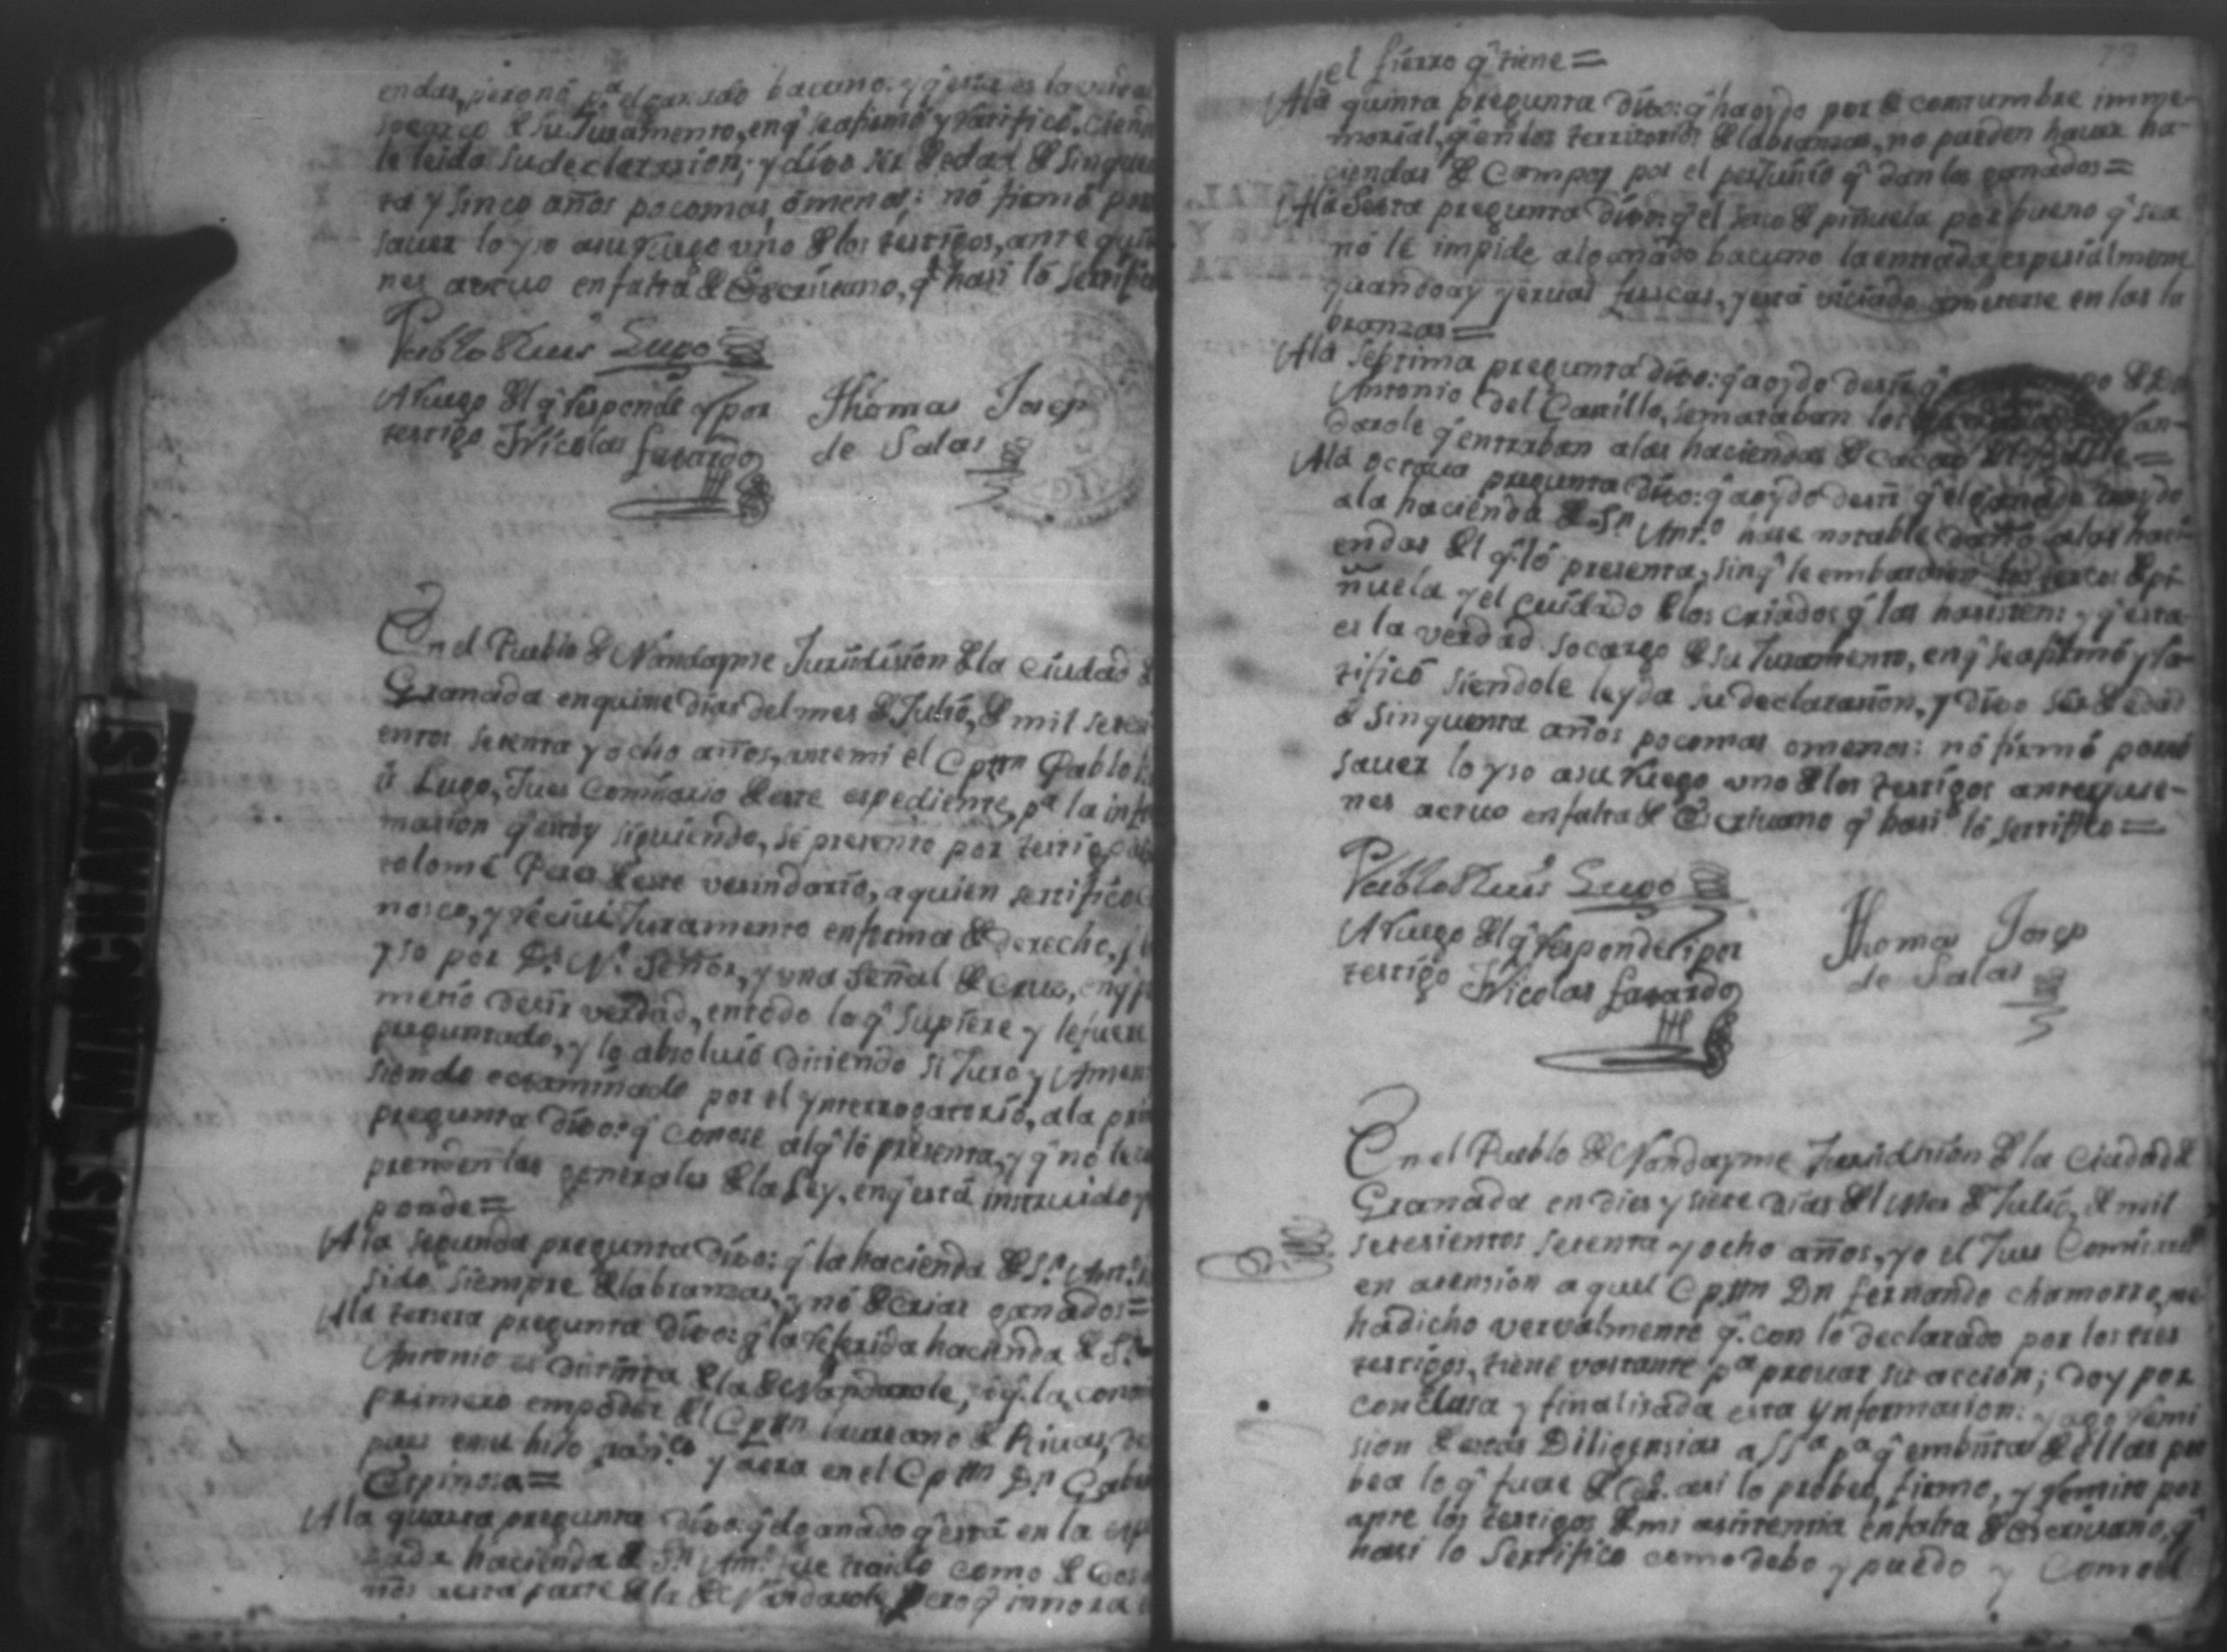 endas, pero nó pª el ganado bacuno. y qͤ esta es la verdad
so cargo & su Juramento, en qͤ se afirmó y ratificó, cien
le leida su declarasion; y dixo ser & edad & sinquen
ta y sinco años poco mas, ó menos: nó firmó por
saver lo yso a su ruego uno & los testigos, ante quie
nes actuo en falta & Escrivano, qͤ hasi ló sertifi
Pablo Ruis Lugo
A ruego &l qͤ responde y por
testigo Nicolas faxardo
Thomas Josep
de Salas
En el Pueblo & Nandayme Jurisdision & la ciudad &
Granada en quinse dias del mes & Julió, & mil setesi
entos setenta y ocho años, ante mi el Cpttn Pablo Ru
is Lugo, Jues Comisario & este espediente, pª la infor
masion qͤ estoy siguiendo, se presentó por testigo
tolomé & este vesindario, a quien sertifico co
nosco, y reciví Juramento en forma & derecho, q
yso por D.s N.o Señor, y una señal & Crus, en q pro
metió desir verdad, en todo lo qͤ supiere y le fuere
preguntado, y lo absoluió diciendo si Juro y Amen
siendo ecsaminado por el ynterrogatorió, a la prim
pregunta dixo: qͤ conose al qͤ ló presenta, y qͤ no le
prenden las generales & la Ley, en qͤ está instruido y
ponde=
A la segunda pregunta dixo: qͤ la hacienda & S.n Ant.o
sido siempre & labranzas, y nó & criar ganados=
A la tersera pregunta dixo: qͤ la referida hacienda & S.n
Antonio es distinta & la & Nandarole, i qͤ la cono
primero em poder &l Cpttn laureano & Rivas, des
pues en su hijo y aora en el Cpttn D.n Gabri
Espinosa=
A la quarta pregunta dixo: qͤ el ganado qͤ está en la espre
zada hacienda & S.n Ant.o fue traido como &
ños a esta parte & la & Nandarole, pero qͤ innora
el fierro qͤ tiene=
A la quinta pregunta dixo: qͤ ha oydo por & costumbre imme-
morial, qͤ en los territorios & labransas, no pueden haver ha-
ciendas & Campos por el perjuisio qͤ dan los ganados=
A la Sesta pregunta dixo: qͤ el serco & piñuela por bueno qͤ sea
nó le impide al ganado bacuno la entrada, espesialmente
quando ay yervas frescas, y está viciado a meterse en las la
branzas=
A la septima pregunta dixo: qͤ a oydo desir qͤ
Antonio del Castillo, se mataban los & Nan-
darole qͤ entraban a las haciendas & cacao
A la octava pregunta dixo: qͤ a oydo desir qͤ el ganado traydo
a la hacienda & S.n Ant.o hase notable daño a las haci
endas &l qͤ ló presenta, sin qͤ le embarasen los sercos & pi-
ñuela y el cuidado & los criados qͤ las hasisten: y qͤ esta
es la verdad so cargo & su Juramento, en qͤ se afirmó y ra-
tificó siendole leyda su declarasion, y dixo ser & edad
& sinquenta años poco mas o menos: nó firmó por nó
saver lo yso a su ruego uno & los testigos ante quie-
nes actuo en falta & Escrivano qͤ hasi ló sertifico=
Pablo Ruis Lugo
A ruego &l qͤ responde y por
testigo Nicolas faxardo
Thomas Josep
de Salas
En el Pueblo & Nandayme Jurisdision & la ciudad &
Granada en dies y siete dias &l Mes & Julió, & mil
setesientos setenta y ocho años, yo el Jues Comisario
en atension a que el Cpttn Dn fernando chamorro, me
ha dicho vervalmente qͤ con ló declarado por los tres
testigos, tiene vastante pª provar su accion; doy por
conclusa y finalisada esta ynformasion: y ago remi
sion & estas Diligensias a SSª pª qͤ em bista & ellas pro
bea lo qͤ fuere & asi lo probeo, firmo, y remito por
ante los testigos & mi asistensia en falta & Escrivano, qͤ
hasi lo Sertifico como debo y puedo y
PAGINAS MANCHADAS